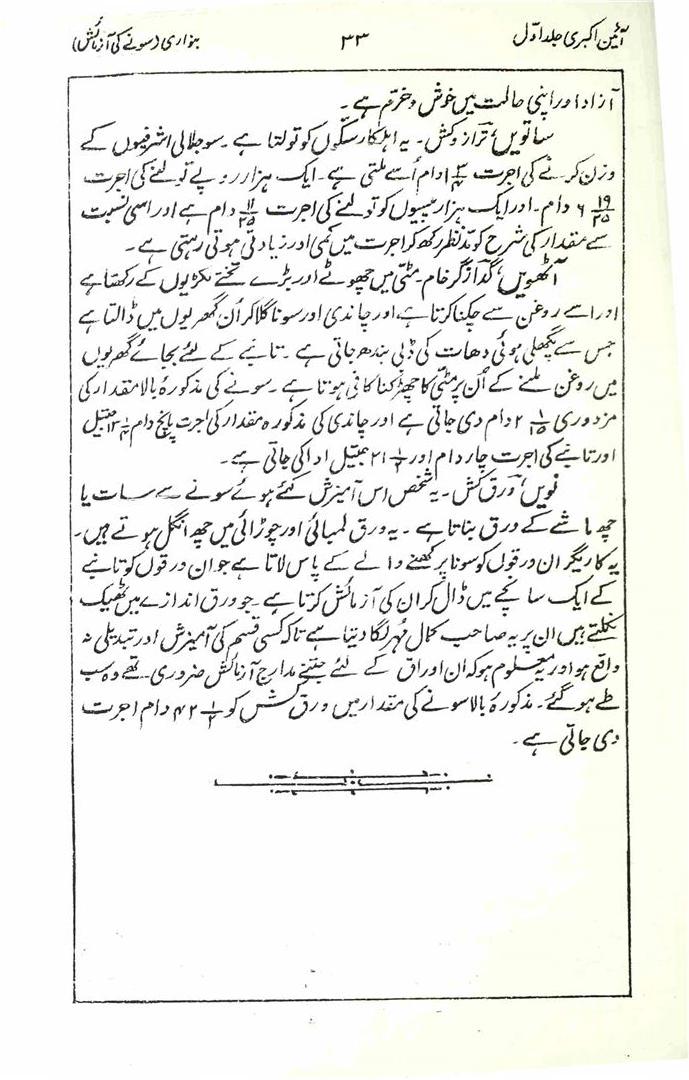 آئین اکبری جلد اوّل ۳۳ بنواری (سونے کی آزمائش)
آزاد اور اپنی حالت میں خوش و خرّم ہے۔
ساتویں، ترازوکش۔ یہ اہلکار سکّوں کو تولتا ہے۔ سو جلالی اشرفیوں کے
وزن کرنے کی اجرت ۱ ۳/۴ دام اُسے ملتی ہے۔ ایک ہزار روپے تولنے کی اجرت
۶ ۱۹/۲۵ دام۔ اور ایک ہزار پیسیوں کو تولنے کی اجرت ۱۱/۲۵ دام ہے اور اسی نسبت
سے مقدار کی شرح کو مدّنظر رکھ کر اجرت میں کمی اور زیادتی ہوتی رہتی ہے۔
آٹھویں، گدازگر خام۔ مٹّی میں چھوٹے اور بڑے تختے لکڑیوں کے رکھتا ہے
اور اسے روغن سے چکنا کرتا ہے، اور چاندی اور سونا گلا کر اُن گھریوں میں ڈالتا ہے
جس سے پگھلی ہوئی دھات کی ڈلی بندھ جاتی ہے۔ تانبے کے لئے بجائے گھریوں
میں روغن ملنے کے اُن پر مٹّی کا چھڑکنا کافی ہوتا ہے۔ سونے کی مذکورۂ بالا مقدار کی
مزدوری ۲ ۱/۱۵ دام دی جاتی ہے اور چاندی کی مذکورہ مقدار کی اجرت پانچ دام ۱۳ ۱/۴ جیتل
اور تانبے کی اجرت چار دام اور ۲۱ ۱/۲ جیتل ادا کی جاتی ہے۔
نویں، ورق کش۔ یہ شخص اس آمیزش کئے ہوئے سونے سے سات یا
چھ ماشے کے ورق بناتا ہے۔ یہ ورق لمبائی اور چوڑائی میں چھ انگل ہوتے ہیں۔
یہ کاریگر ان ورقوں کو سونا پرکھنے والے کے پاس لاتا ہے جو ان ورقوں کو تانبے
کے ایک سانچے میں ڈال کر ان کی آزمائش کرتا ہے۔ جو ورق اندازے میں ٹھیک
نکلتے ہیں ان پر یہ صاحب کمال مُہر لگا دیتا ہے تاکہ کسی قسم کی آمیزش اور تبدیلی نہ
واقع ہو اور یہ معلوم ہو کہ ان اوراق کے لئے جتنے مدارج آزمائش ضروری تھے وہ سب
طے ہو گئے۔ مذکورۂ بالا سونے کی مقدار میں ورق کش کو ۴۲ ۱/۳ دام اجرت
دی جاتی ہے۔